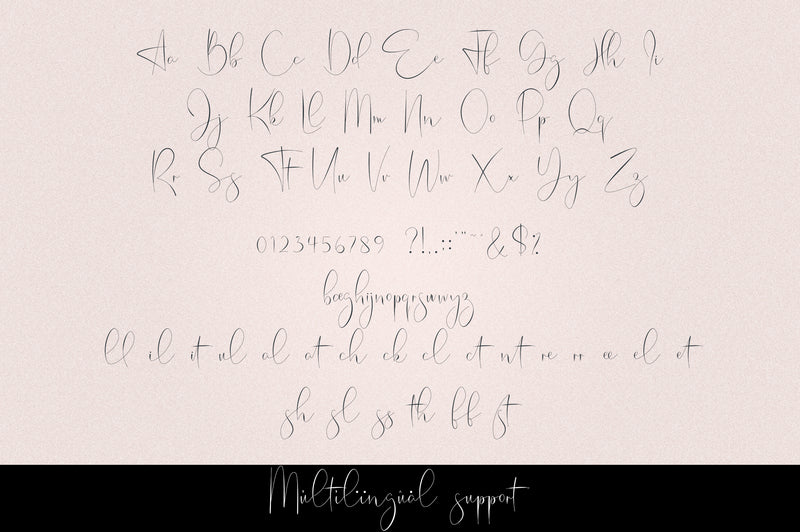 Aa Bb Cc Dd Ee Ff Gg Hh Ii
Jj Kk Ll Mm Nn Oo Pp Qq
Rr Ss Tt Uu Vv Ww Xx Yy Zz
0123456789 ?!..:;'"~-&$%
bœghijnopqrswwyz
ll il it ul al at ch ck cl ct nt re rr ee el et
sh sl ss th ff st
Múltilingüäl support